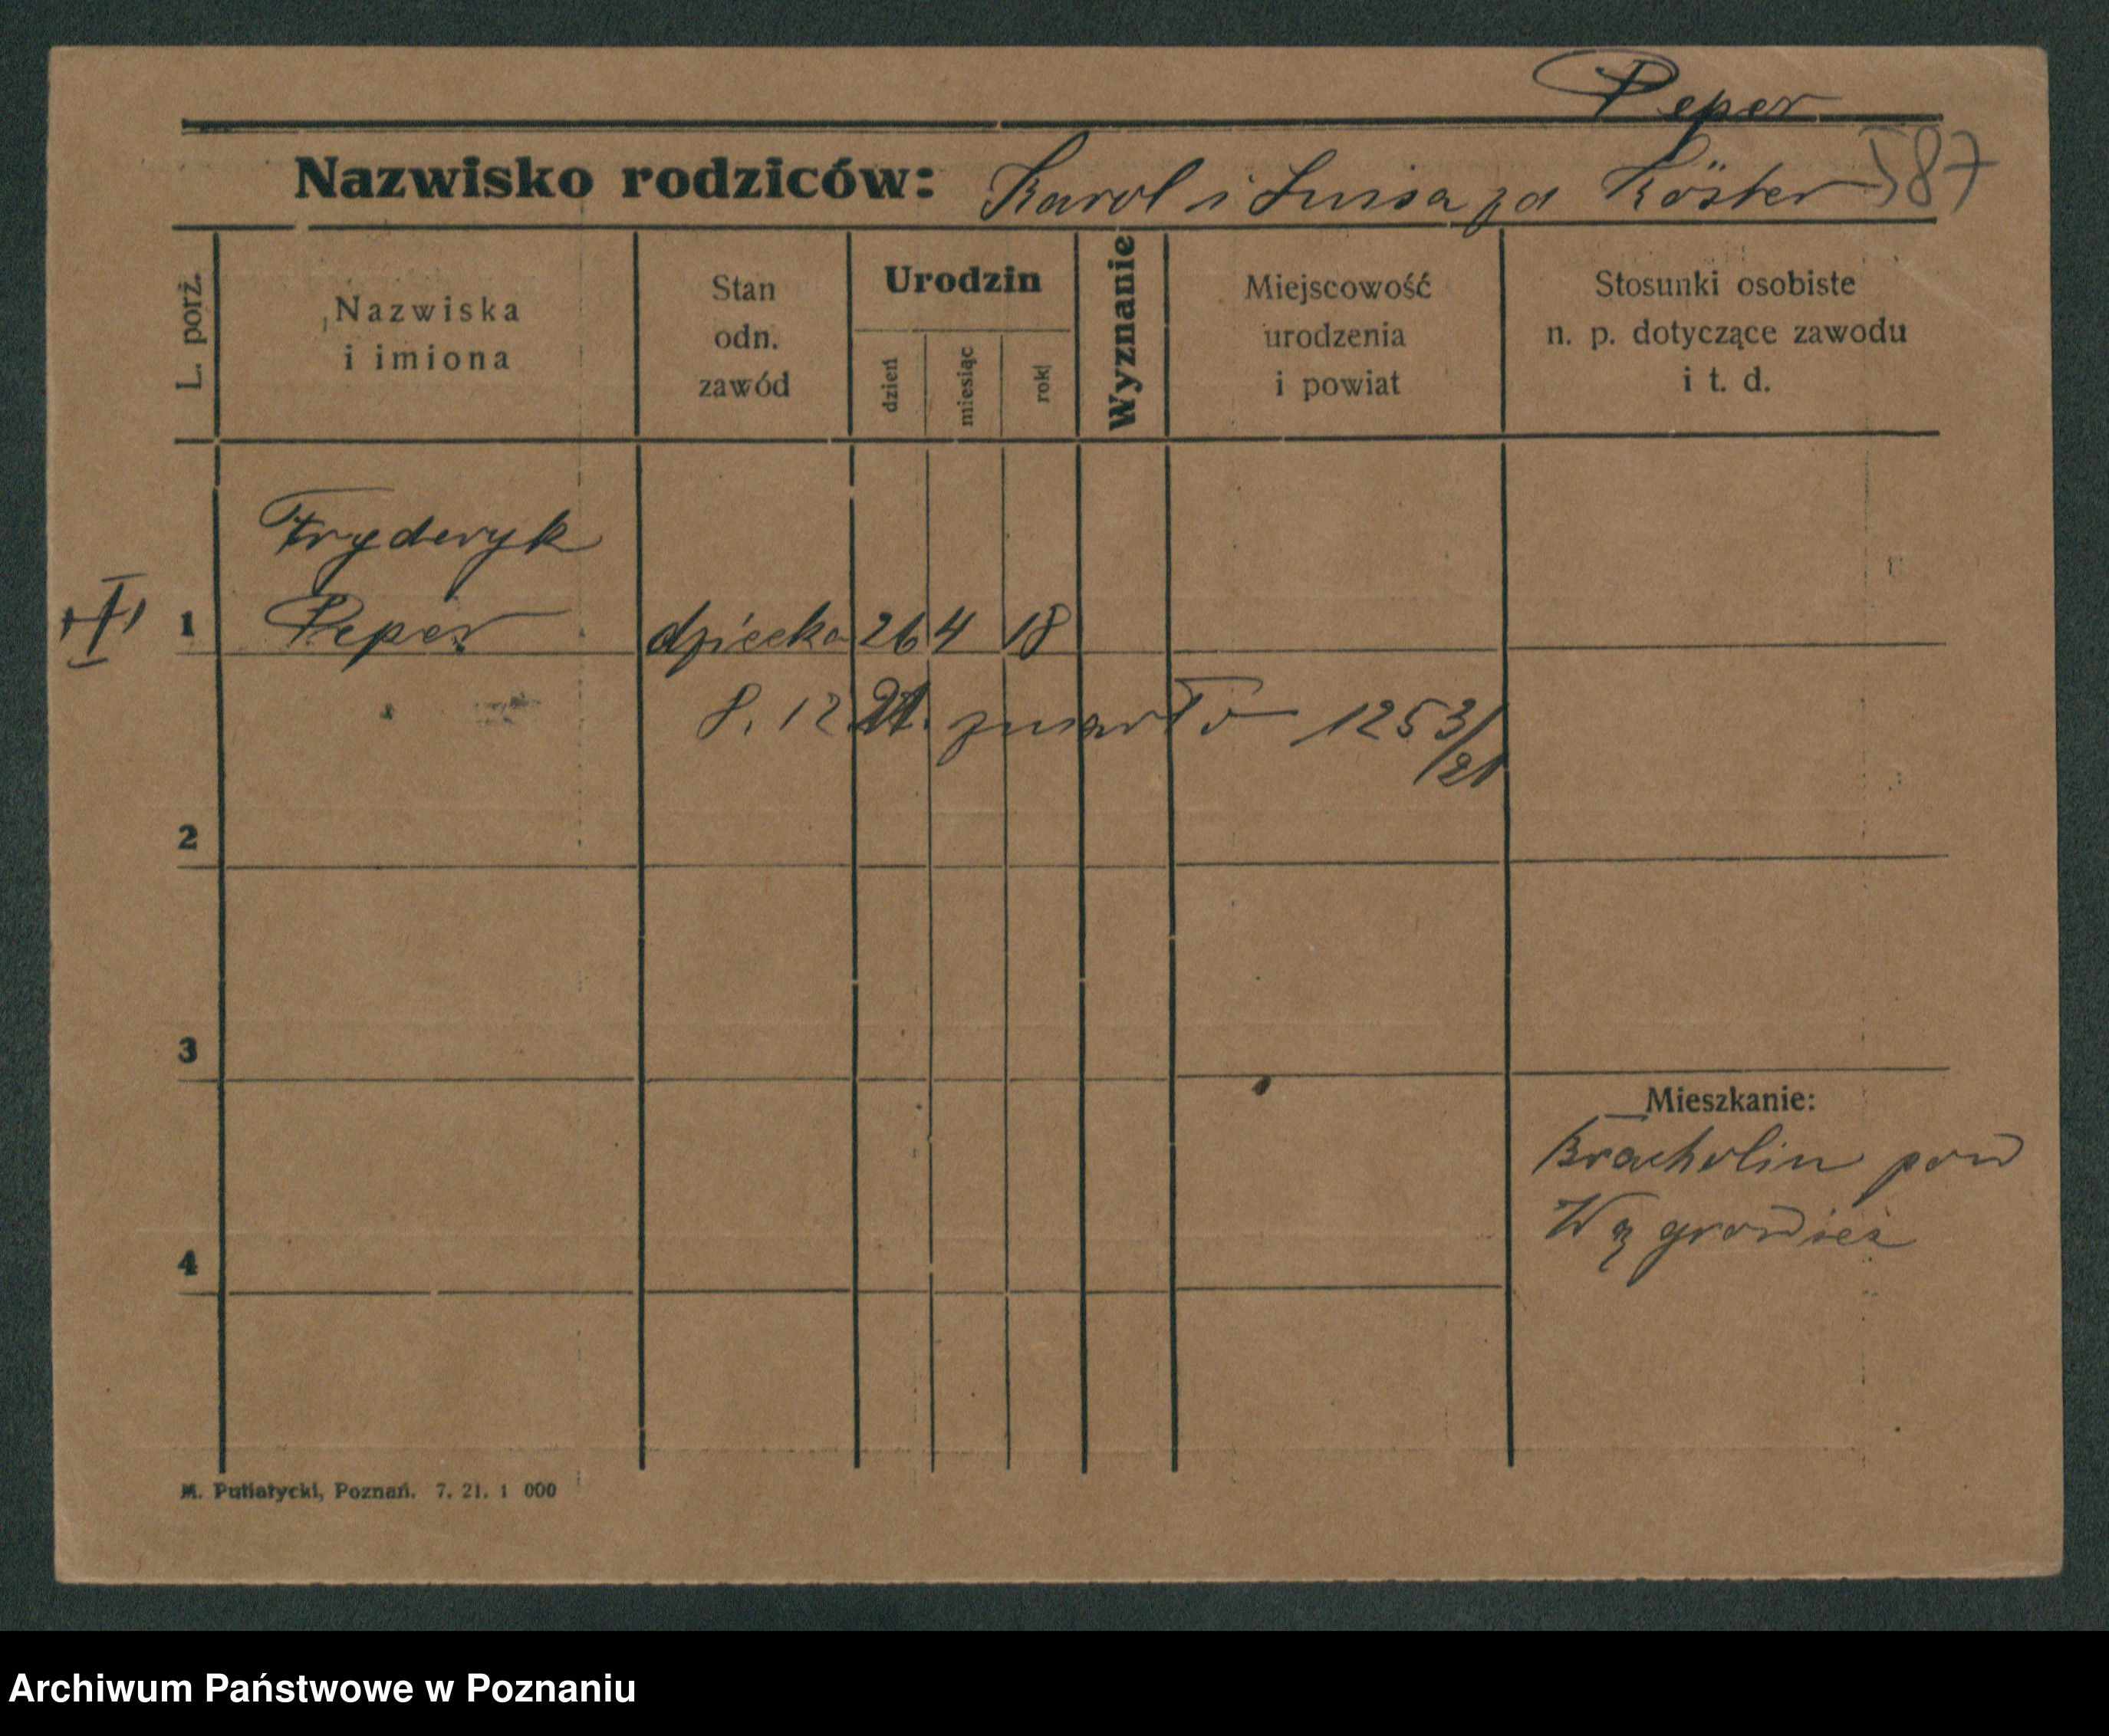 Peper
Nazwisko rodziców: Karol i Luisa zd Köster 587
L. porż.
Nazwiska
i imiona
Stan
odn.
zawód
Urodzin
dzień
miesiąc
rok
Wyznanie
Miejscowość
urodzenia
i powiat
Stosunki osobiste
n. p. dotyczące zawodu
i t. d.
Fryderyk
1 Peper dziecko 26 4 18
8. 12. 21. zmarło 1253/21
2
3
Mieszkanie:
Bracholin pow
Wągrowiec
4
M. Putiatycki, Poznań. 7. 21. 1 000
Archiwum Państwowe w Poznaniu